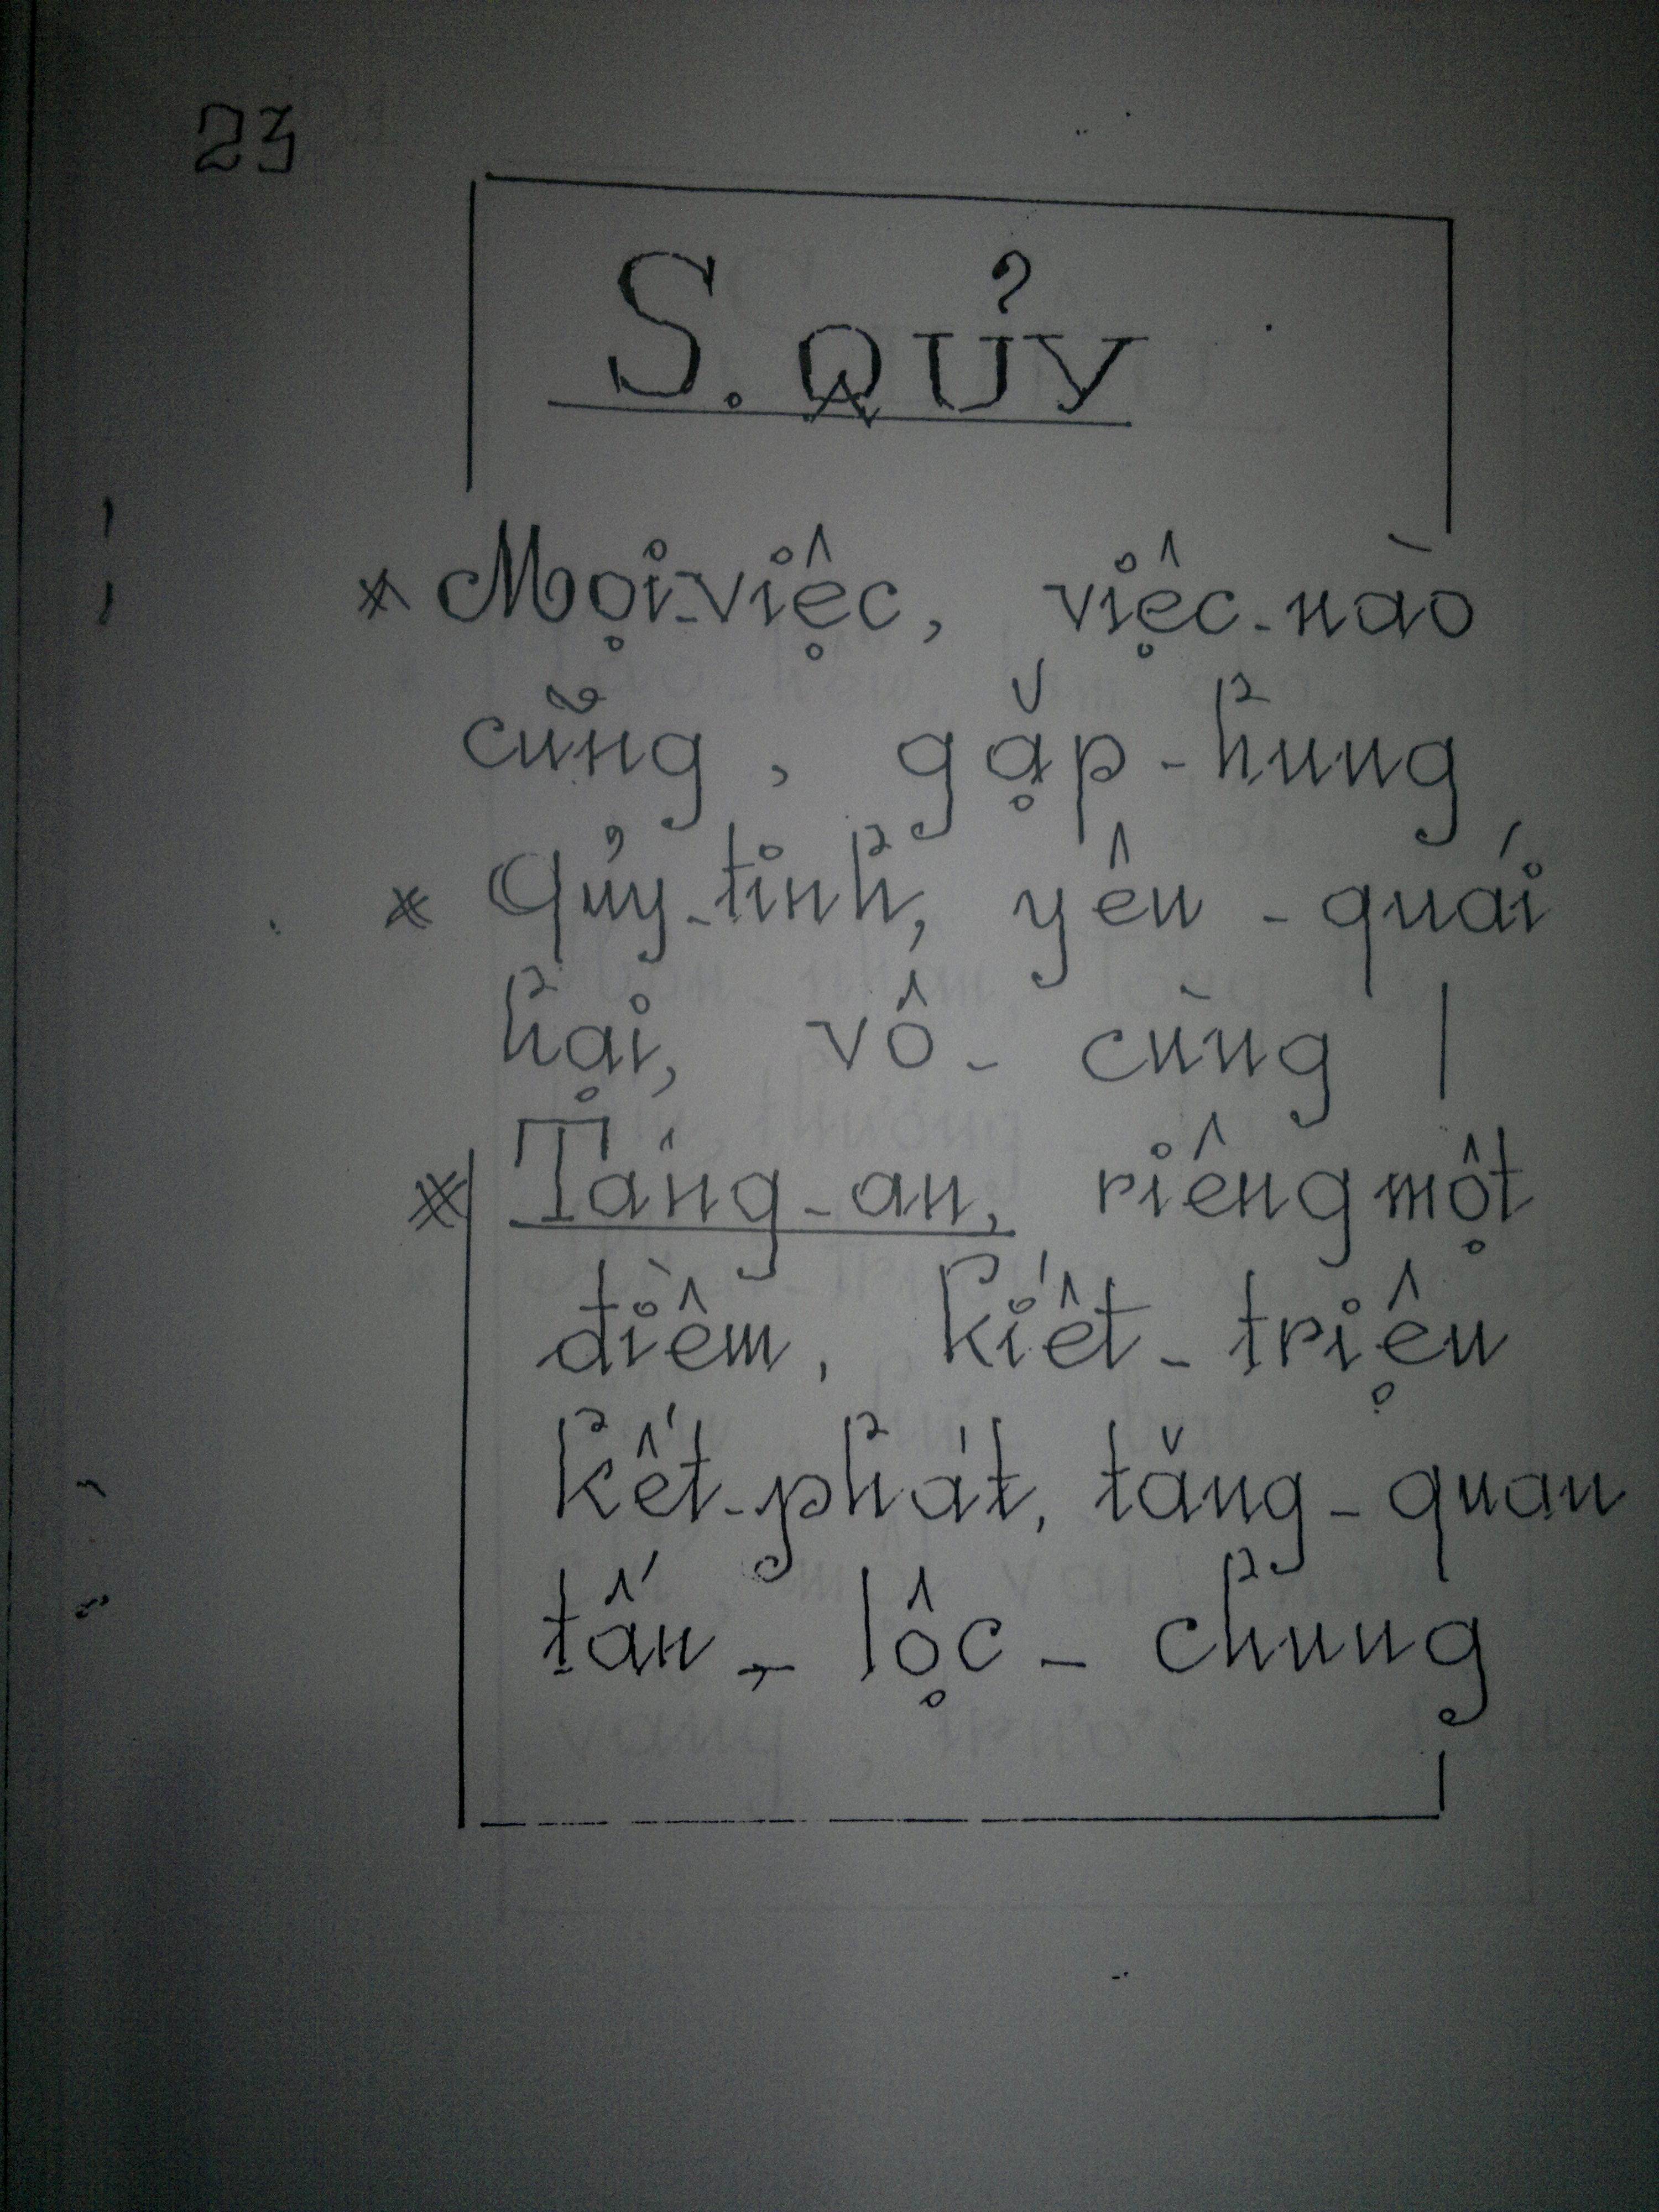 23
S. QỦY
* Mọi-việc, việc-nào
cũng, gặp-hung
* Qủy-tinh, yêu-quái
hại, vô-cùng
* Táng-an, riêng một
điềm, kiết-triệu
kết-phát, tăng-quan
tấn-, lộc-chung